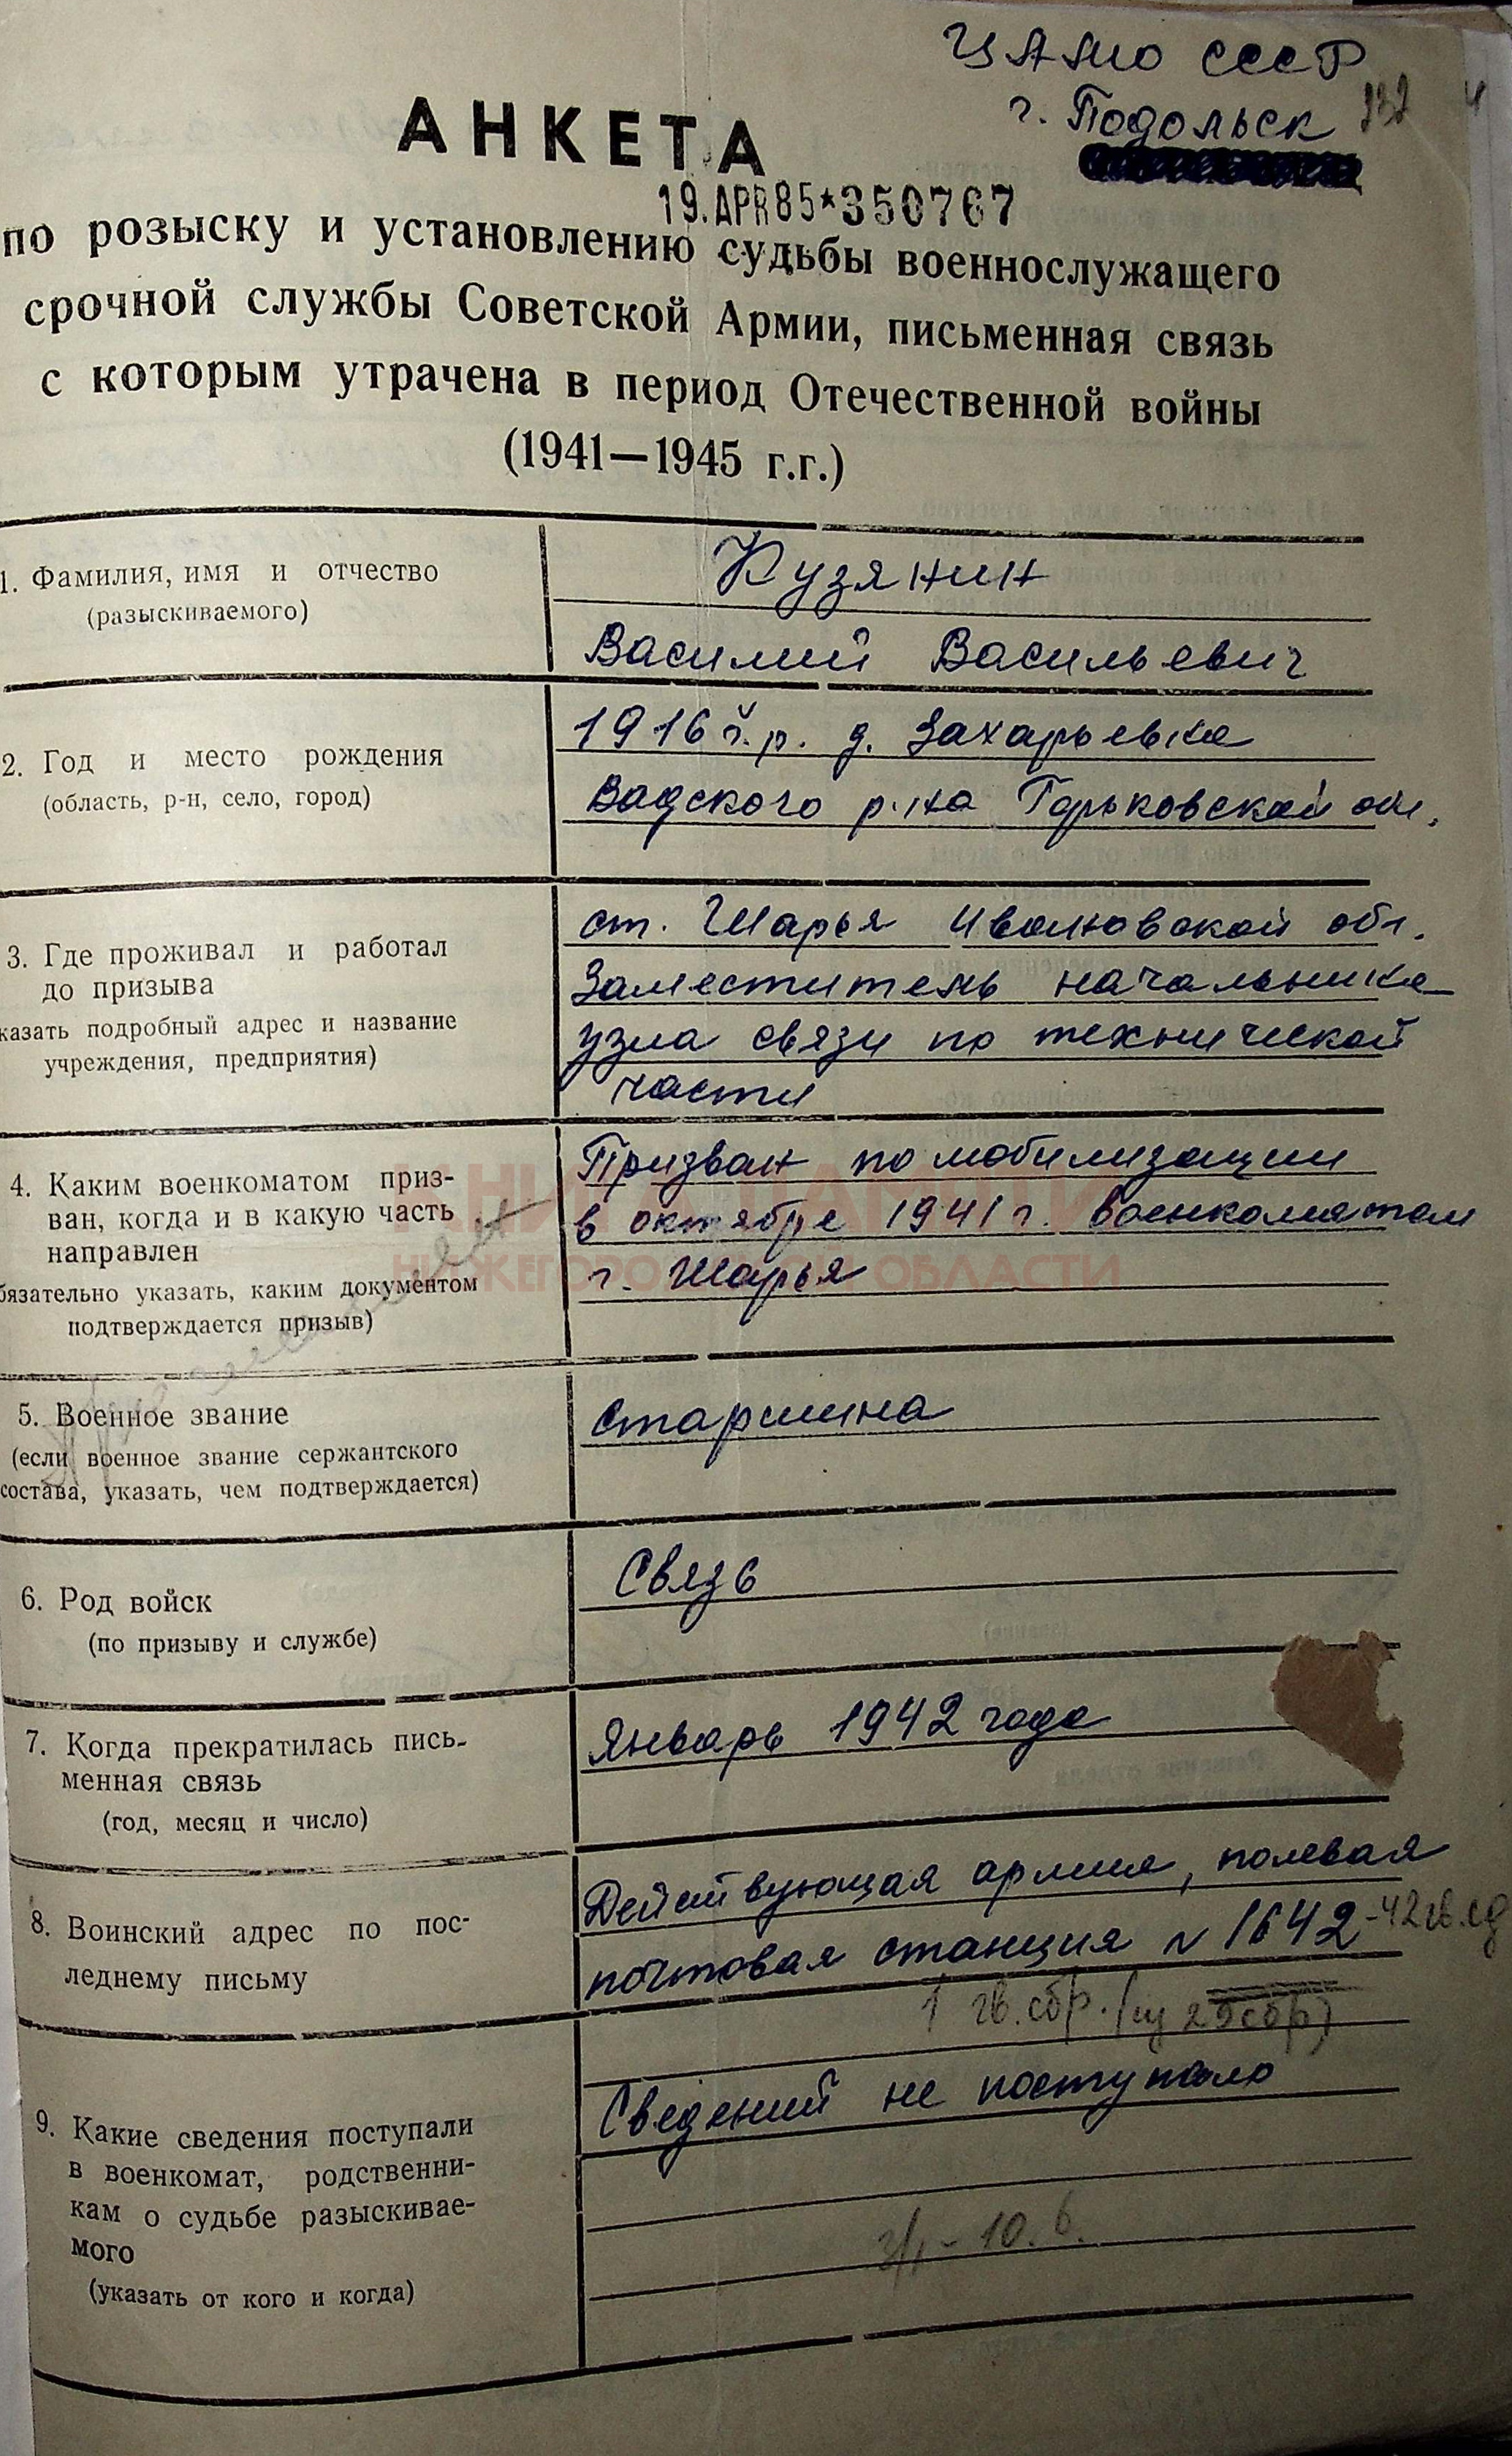 ЦАМО СССР
г. Подольск
АНКЕТА
19.APR85*350767
по розыску и установлению судьбы военнослужащего
срочной службы Советской Армии, письменная связь
с которым утрачена в период Отечественной войны
(1941—1945 г.г.)
1. Фамилия, имя и отчество
(разыскиваемого)
Кузянин
Василий Васильевич
2. Год и место рождения
(область, р-н, село, город)
1916 г.р. д. Захарьевка
Вадского р-на Горьковской обл.
3. Где проживал и работал
до призыва
казать подробный адрес и название
учреждения, предприятия)
ст. Шарья Ивановской обл.
Заместитель начальника
узла связи по технической
части
4. Каким военкоматом приз-
ван, когда и в какую часть
направлен
бязательно указать, каким документом
подтверждается призыв)
Призван по мобилизации
в октябре 1941 г. военкоматом
г. Шарья
КНИГА ПАМЯТИ
НИЖЕГОРОДСКОЙ ОБЛАСТИ
5. Военное звание
(если военное звание сержантского
состава, указать, чем подтверждается)
старшина
6. Род войск
(по призыву и службе)
Связь
7. Когда прекратилась пись-
менная связь
(год, месяц и число)
Январь 1942 года
8. Воинский адрес по пос-
леднему письму
Действующая армия, полевая
почтовая станция N 1642 -42 гв.сд
1 гв.сбр. (из 25сбр)
9. Какие сведения поступали
в военкомат, родственни-
кам о судьбе разыскивае-
мого
(указать от кого и когда)
Сведений не поступало